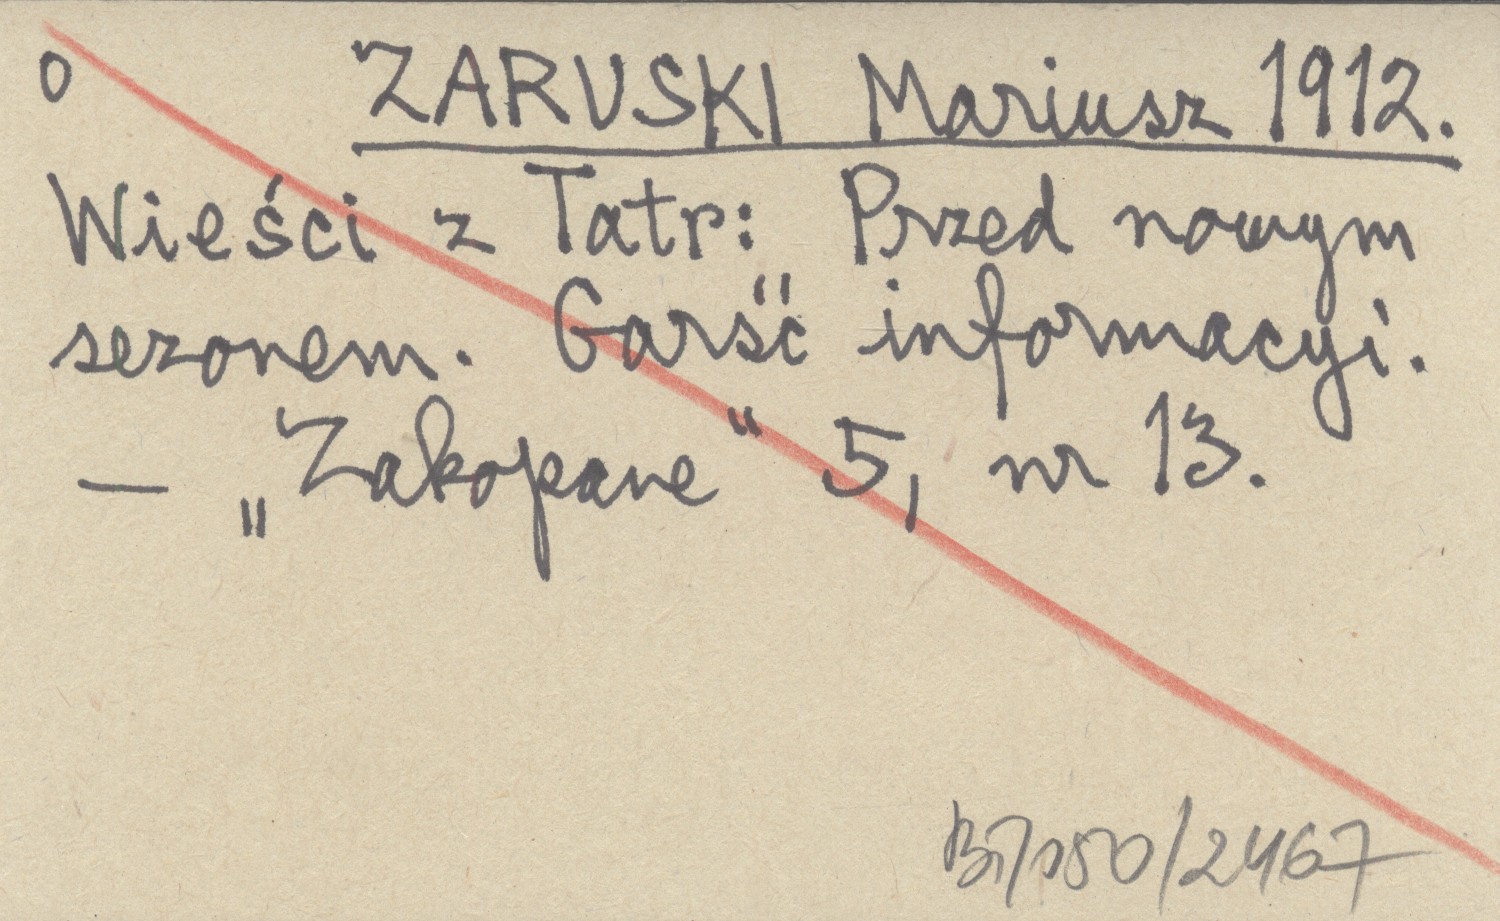 0 ZARUSKI Mariusz 1912.
Wieści z Tatr: Przed nowym
sezonem. Garść informacyi.
— „Zakopane" 5, nr 13.
/2467